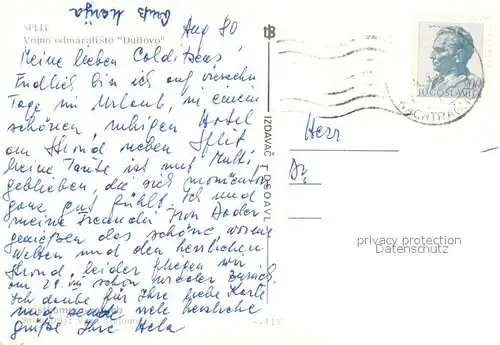 Gruß Marija
Aug 80
SPLIT
Vojno odmaralište "Duilovo"
Meine lieben Colditseas!
Endlich bin ich auf vierzehn
Tage im Urlaub, in einem
schönen, ruhigen Hotel
am Strond neben Split
Meine Tante ist mit Mutti
geblieben, die sich momentan
ganz gut fühlt. Ich und
meine Freundin Frau
genießen das schöne warme
Wetter und den herrlichen
Strond, leider fliegen wir
am 29. schon wieder zurück.
Ich danke für Ihre liebe Karte
und sende viele herzliche
grüße Ihre Hela
IZDAVAČ
JUGOSLAVIJA
Herr
Dr
privacy protection
Datenschutz